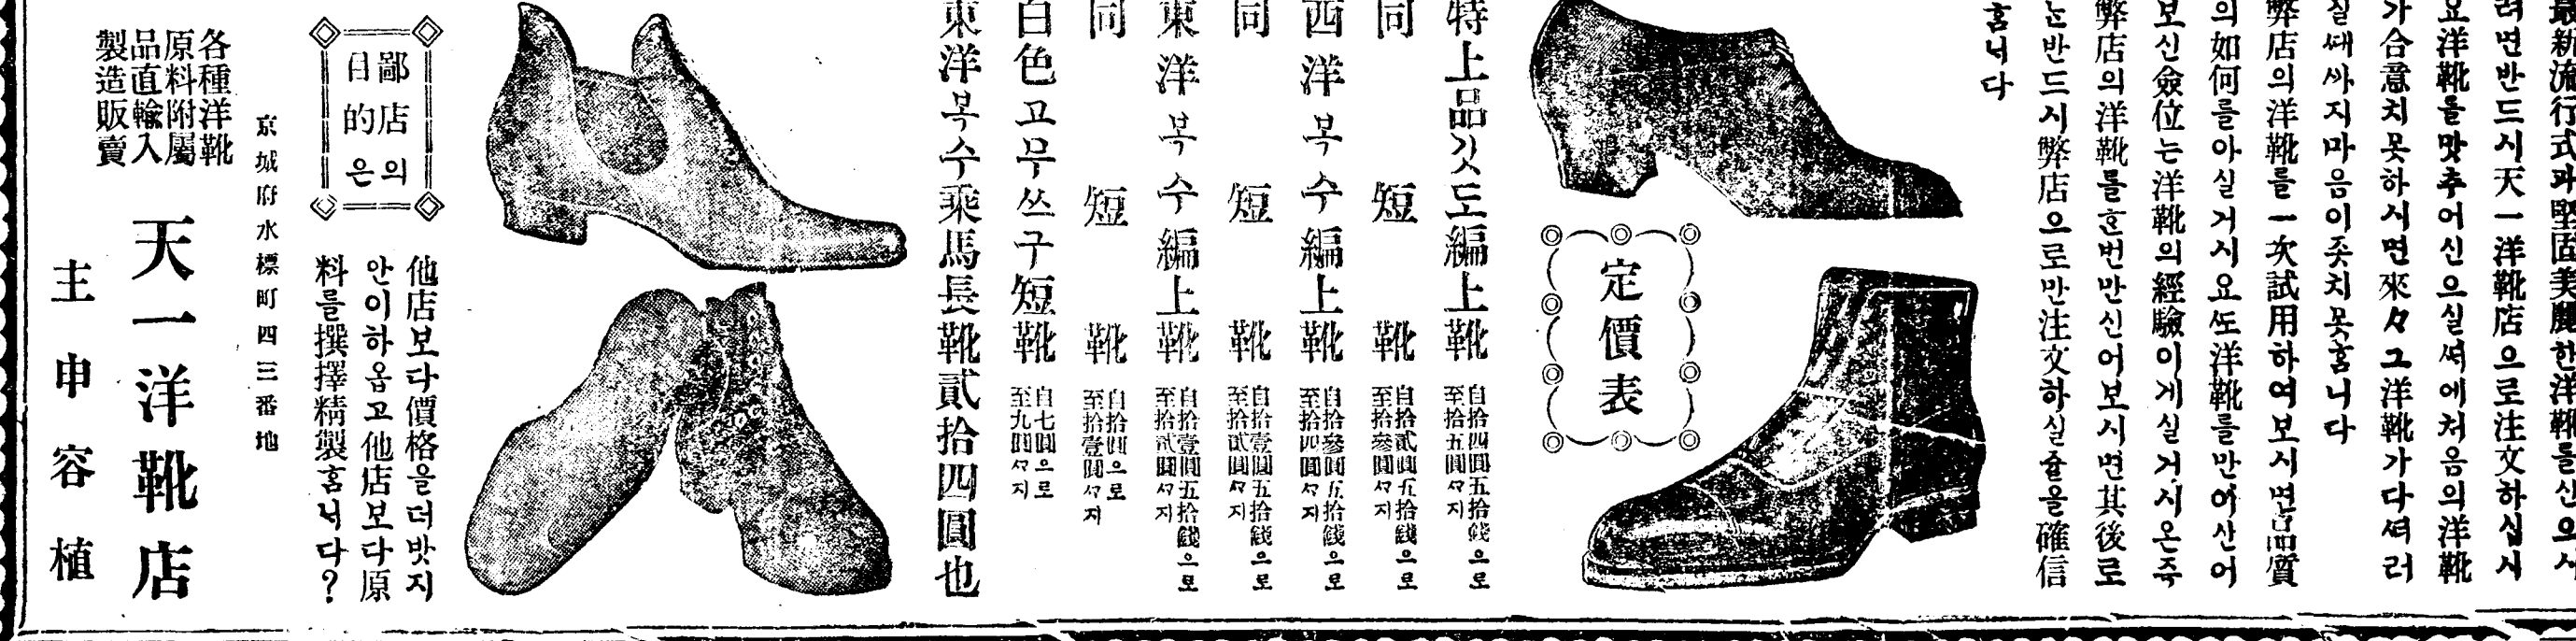 最新流行式과堅固美麗한洋靴를신으시
려면반드시天一洋靴店으로注文하십시
요洋靴를맛추어신으실ᄯᅢ에처음의洋靴
가合意치못하시면來々그洋靴가다ᄯᅥ러
질ᄯᅢᄭᅡ지마음이죳치못홈니다
弊店의洋靴를一次試用하여보시면品質
의如何를아실거시요ᄯᅩ洋靴를만이산어
보신僉位는洋靴의經驗이게실거시온즉
弊店의洋靴를한번만신어보시면其後로
는반드시弊店으로만注文하실쥴을確信
홈니다
定價表
特上品깃도編上靴 自拾四圓五拾錢으로 至拾五圓ᄭᅡ지
同 短靴 自拾貳圓五拾錢으로 至拾參圓ᄭᅡ지
西洋복수編上靴 自拾參圓五拾錢으로 至拾四圓ᄭᅡ지
同 短靴 自拾壹圓五拾錢으로 至拾貳圓ᄭᅡ지
東洋복수編上靴 自拾壹圓五拾錢으로 至拾貳圓ᄭᅡ지
同 短靴 自拾圓으로 至拾壹圓ᄭᅡ지
白色고무쓰구短靴 自七圓으로 至九圓ᄭᅡ지
東洋복수乘馬長靴貳拾四圓也
鄙店의
目的은
他店보다價格을더밧지
안이하옵고他店보다原
料를撰擇精製홈니다?
京城府水標町四三番地
各種洋靴
原料附屬
品直輸入
製造販賣
天一洋靴店
主申容植